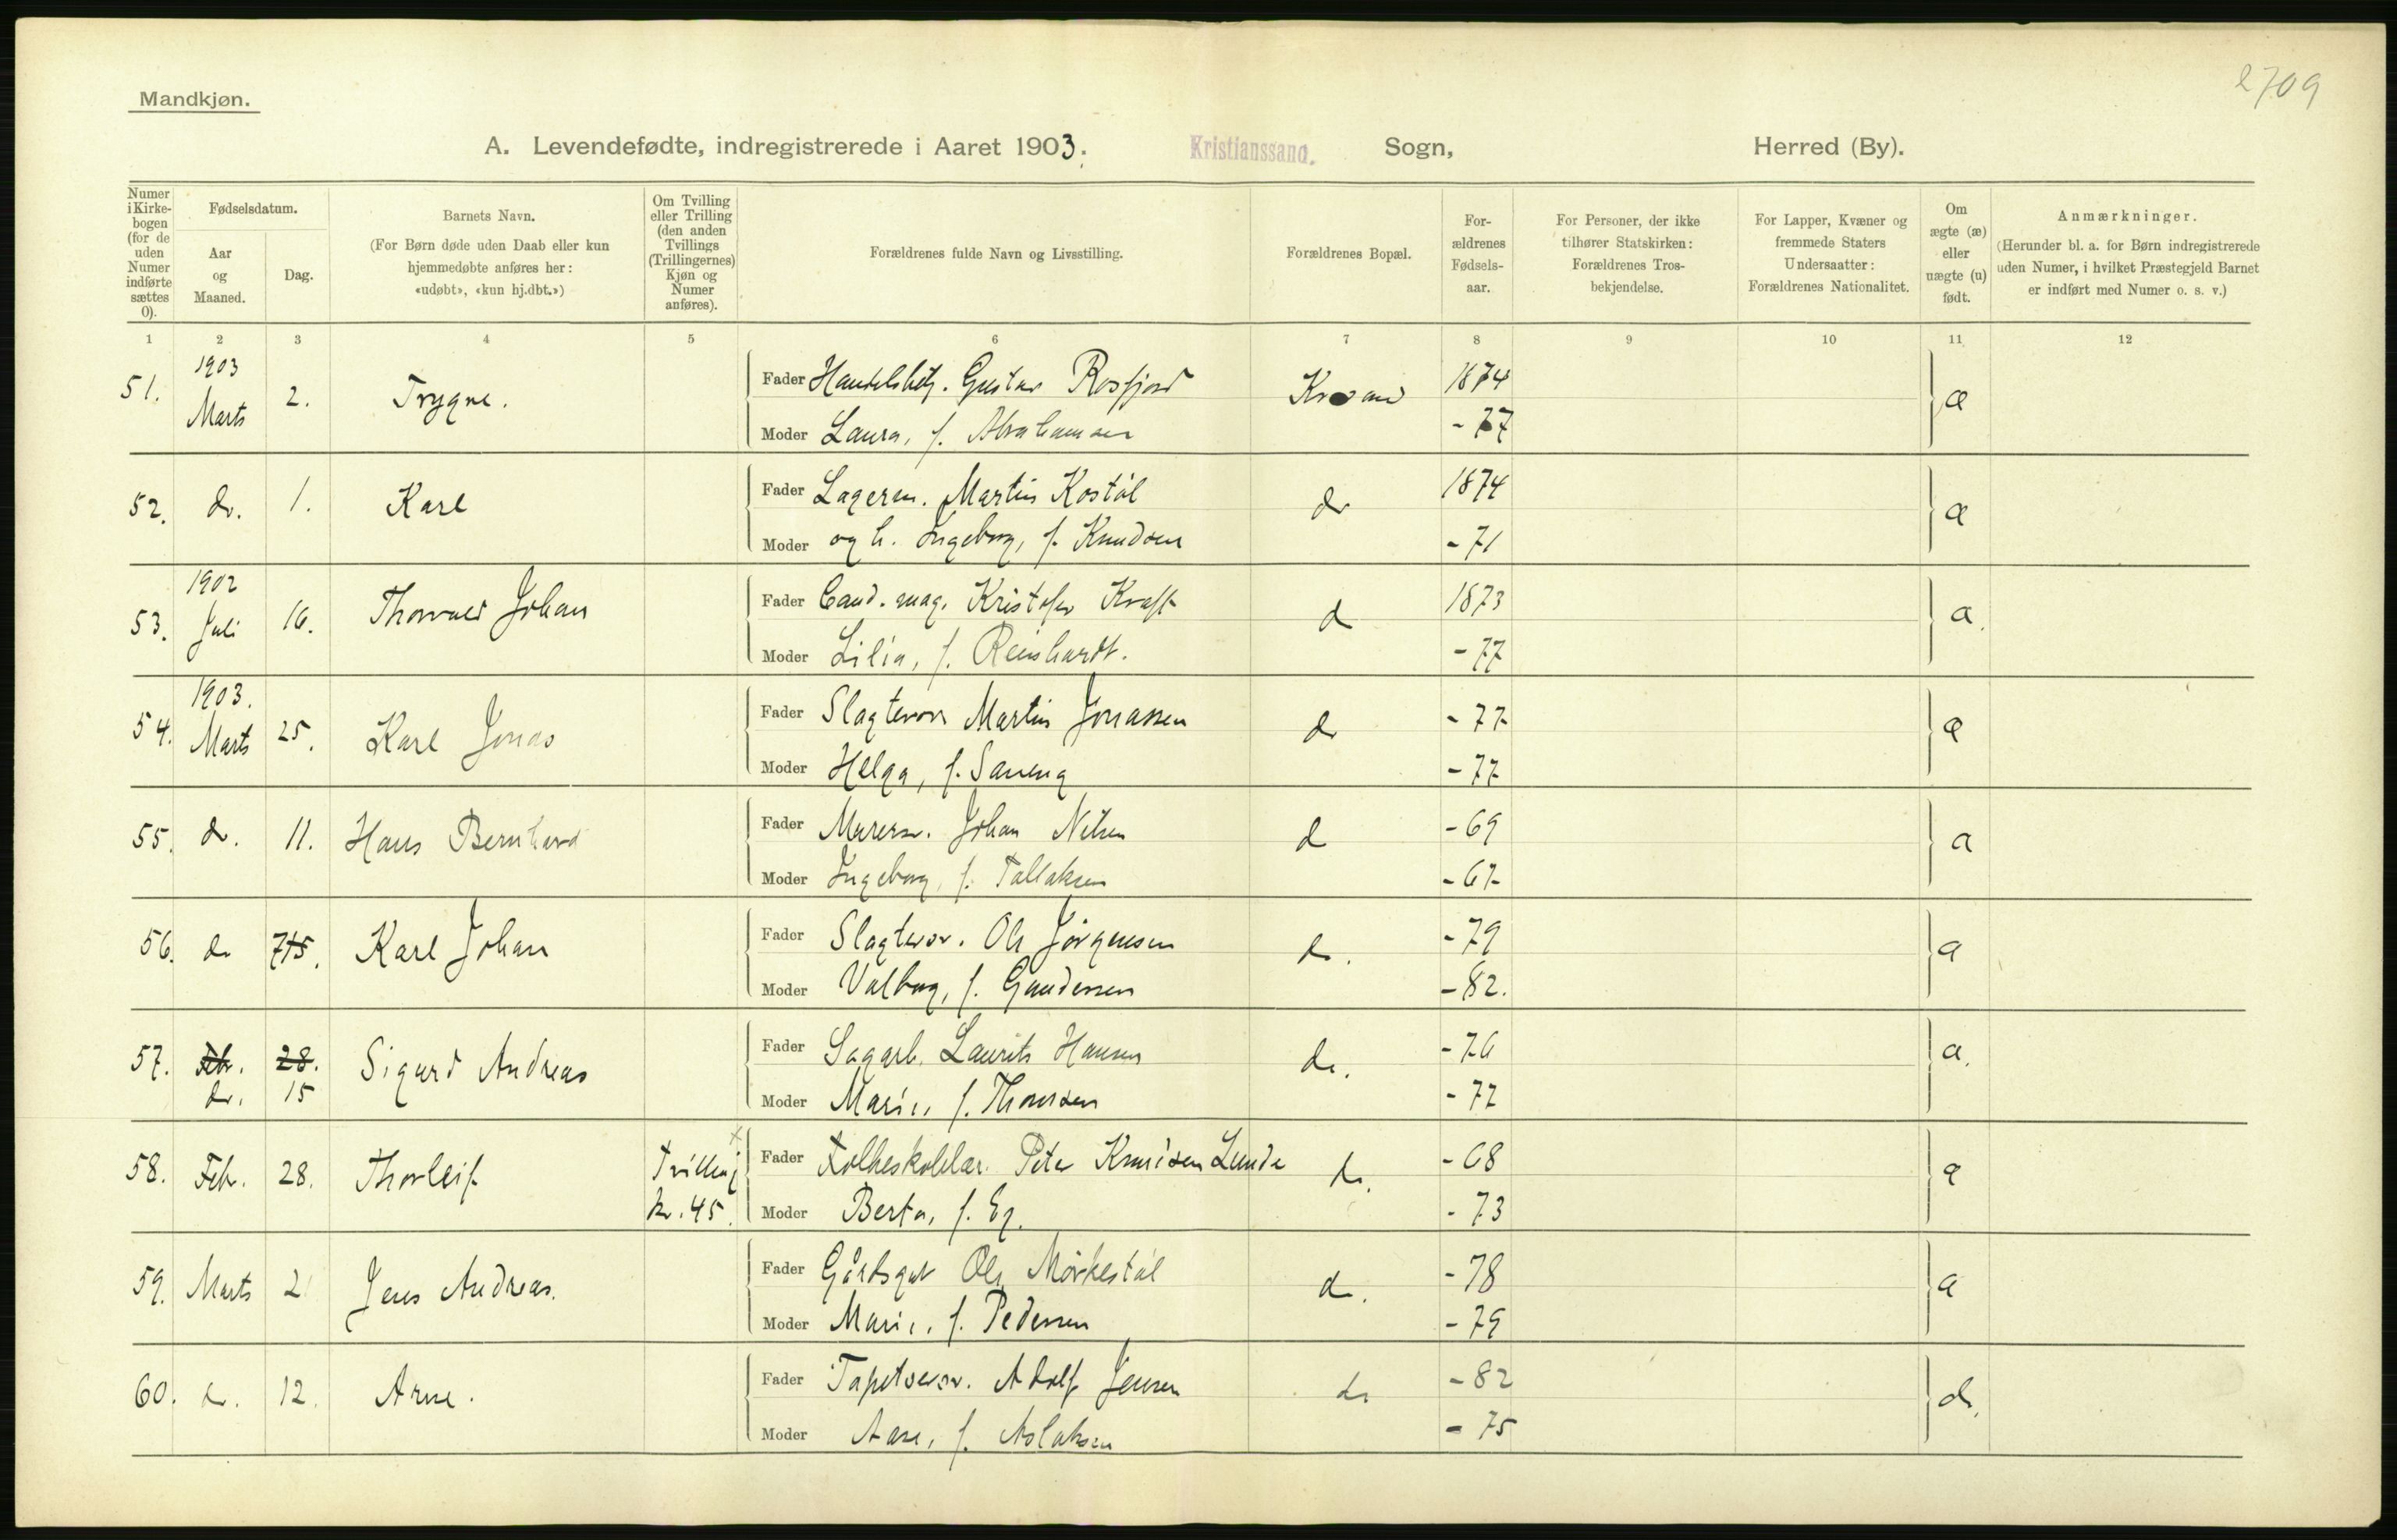 Mandkjøn.
2709
A. Levendefødte, indregistrerede i Aaret 1903. Kristianssand. Sogn, Herred (By).
Numer i Kirkebogen (for de uden Numer indførte sættes 0).
Fødselsdatum.
Aar og Maaned.
Dag.
Barnets Navn.
(For Børn døde uden Daab eller kun hjemmedøbte anføres her: «udøbt», «kun hj.dbt.»)
Om Tvilling eller Trilling (den anden Tvillings (Trillingernes) Kjøn og Numer anføres).
Forældrenes fulde Navn og Livsstilling.
Forældrenes Bopæl.
Forældrenes Fødselsaar.
For Personer, der ikke tilhører Statskirken: Forældrenes Trosbekjendelse.
For Lapper, Kvæner og fremmede Staters Undersaatter: Forældrenes Nationalitet.
Om ægte (æ) eller uægte (u) født.
Anmærkninger.
(Herunder bl. a. for Børn indregistrerede uden Numer, i hvilket Præstegjeld Barnet er indført med Numer o. s. v.)
1 2 3 4 5 6 7 8 9 10 11 12
51. 1903 Marts 2. Trygve. Fader Handelsbetj. Gustav Rosfjord Krsand 1874 æ
Moder Laura, f. Abrahamsen - 77
52. do. 1. Karl Fader Lagerm. Martin Kostøl do 1874 æ
Moder og h. Ingeborg, f. Knudsen - 71
53. 1902 Juli 16. Thorvald Johan Fader Cand. mag. Kristofer Kraft d 1873 æ.
Moder Lilia, f. Reinhardt. - 77
54. 1903. Marts 25. Karl Jonas Fader Slagtersv. Martin Jonassen do - 77
æ
Moder Helga, f. - 77
55. do. 11. Hans Bernhard Fader Murersv. Johan Nilsen d - 69 æ
Moder Ingeborg, f. Tallaksen - 67
56. do Karl Johan Fader Slagtersv. Ole Jørgensen do. - 79 æ
Moder Valborg, f. Gundersen - 82.
57. Feb. 28. Sigurd Andreas Fader Sagarb. Laurits Hansen do. - 76 æ.
do. 15 Moder Marie, f. Thomsen - 77
58. Feb. 28. Thorleif Tvilling x Fader Folkeskolelær. Peter Knudsen Lunde do. - 68 æ
kv. 45. Moder Berta, f. Eg. - 73
59. Marts 2 Jens Andreas. Fader Gårdsgut Ole Mørkestøl do. - 78 æ
Moder Marie, f. Pedersen - 79
60. do. 12. Arne. Fader Tapetsersv. Adolf Jensen do - 82 do.
Moder Aase, f. Aslaksen - 75